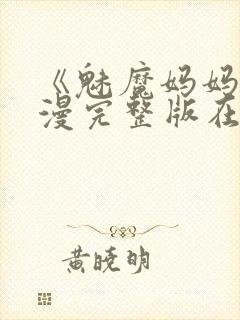 《魅魔妈妈
漫完整版在
黄晓明